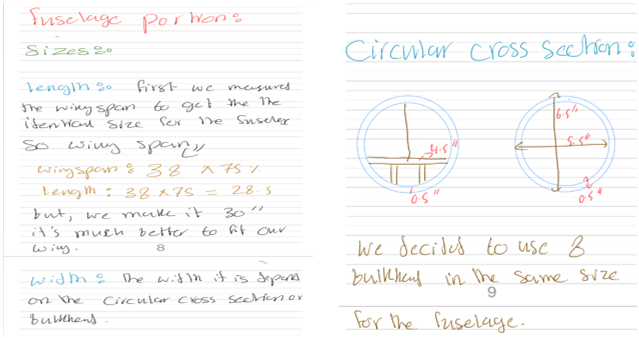 fuselage portion:
Sizes:
Length: first we measured
the wing span to get the the
identical size for the fuselage
so wing span
wingspan: 38 x 75 %
Length: 38 x 75 = 28.5
but, we make it 30"
it's much better to fit our
wing.
8
width: the width it is depend
on the circular cross section or
bulkhead.
Circular cross section:
4.5"
0.5"
6.5"
5.5"
0.5"
We decided to use 8
bulkhead in the same size
9
for the fuselage.